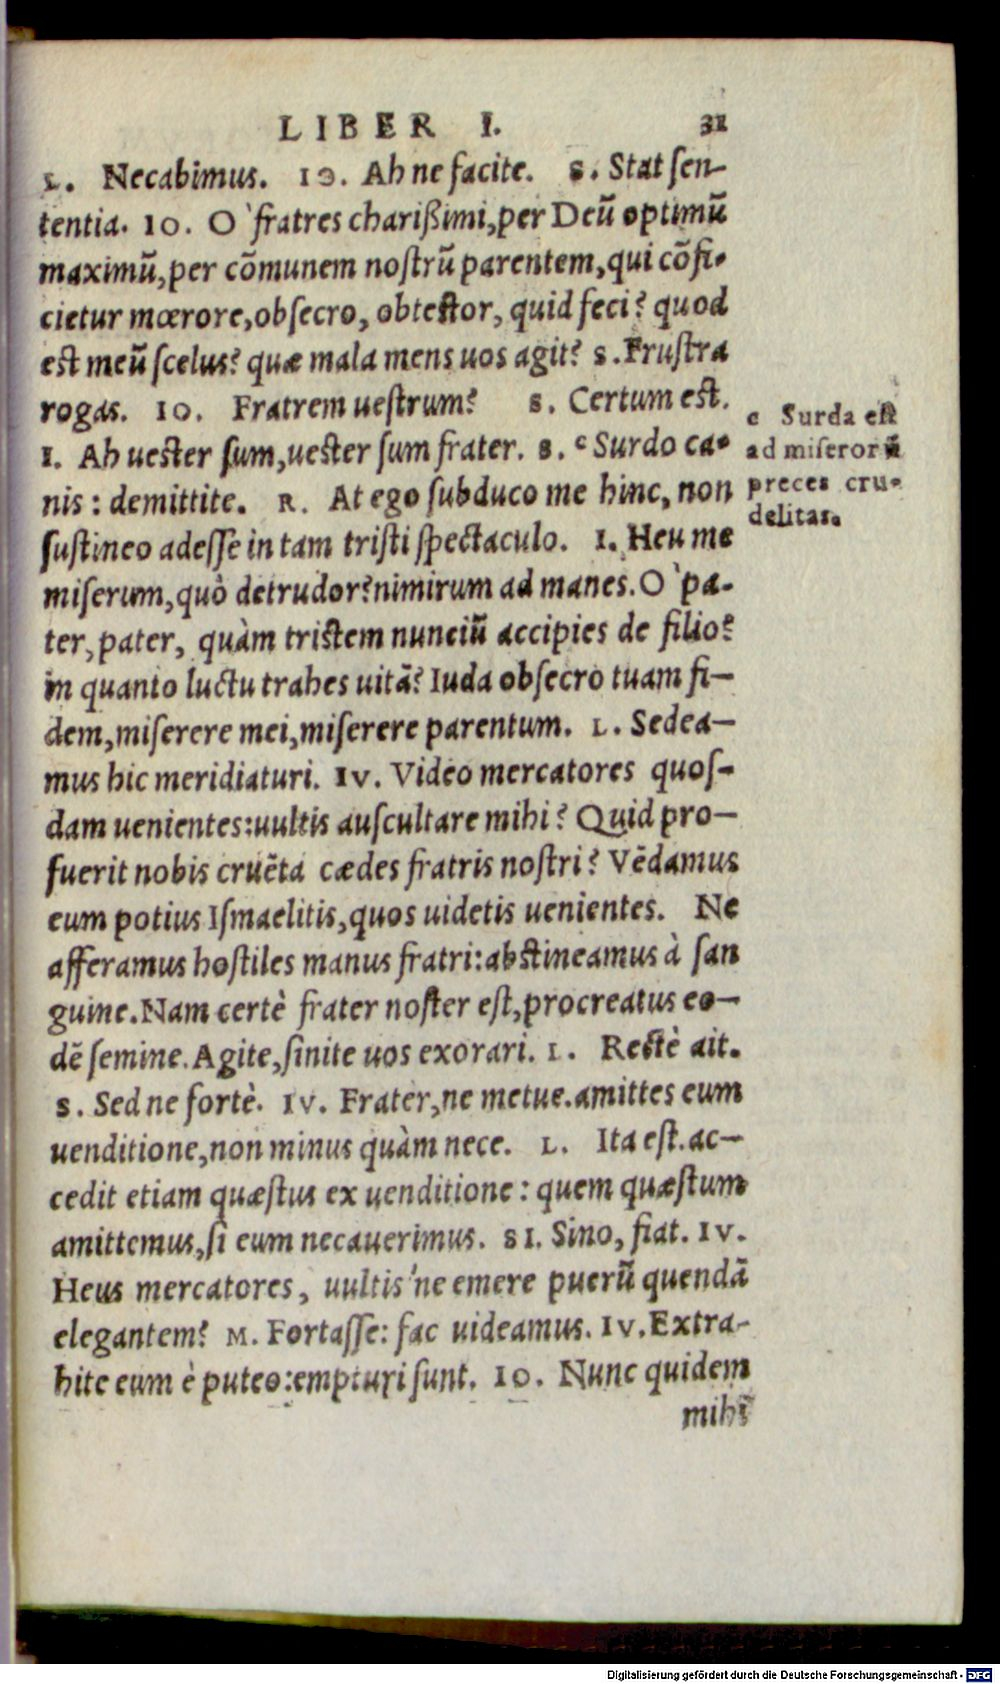 LIBER I. 31
L. Necabimus. IO. Ah ne facite. S. Stat ſen-
tentia. IO. O fratres charißimi, per Deũ optimũ
maximũ, per cõmunem noſtrũ parentem, qui cõfi-
cietur mœrore, obſecro, obteſtor, quid feci? quod
eſt meũ ſcelus? quæ mala mens uos agit? S. Fruſtra
rogas. IO. Fratrem ueſtrum? S. Certum eſt.
I. Ah ueſter ſum, ueſter ſum frater. S. ᶜ Surdo ca-
nis: demittite. R. At ego ſubduco me hinc, non
ſuſtineo adeſſe in tam triſti ſpectaculo. I. Heu me
miſerum, quò detrudor? nimirum ad manes. O pa-
ter, pater, quàm triſtem nunciũ accipies de filio?
in quanto luctu trahes uitã? Iuda obſecro tuam fi-
dem, miſerere mei, miſerere parentum. L. Sedea-
mus hic meridiaturi. IV. Video mercatores quoſ-
dam uenientes: uultis auſcultare mihi? Quid pro-
fuerit nobis cruẽta cædes fratris noſtri? Vẽdamus
eum potius Iſmaelitis, quos uidetis uenientes. Ne
afferamus hoſtiles manus fratri: abſtineamus à ſan
guine. Nam certè frater noſter eſt, procreatus eo-
dẽ ſemine. Agite, ſinite uos exorari. L. Rectè ait.
S. Sed ne fortè. IV. Frater, ne metue. amittes eum
uenditione, non minus quàm nece. L. Ita eſt. ac-
cedit etiam quæſtus ex uenditione: quem quæſtum
amittemus, ſi eum necauerimus. SI. Sino, fiat. IV.
Heus mercatores, uultis'ne emere puerũ quendã
elegantem? M. Fortaſſe: fac uideamus. IV. Extra-
hite eum è puteo: empturi ſunt. IO. Nunc quidem
mihi
c Surda eſt
ad miſerorũ
preces cru-
delitas.
Digitalisierung gefördert durch die Deutsche Forschungsgemeinschaft - DFG